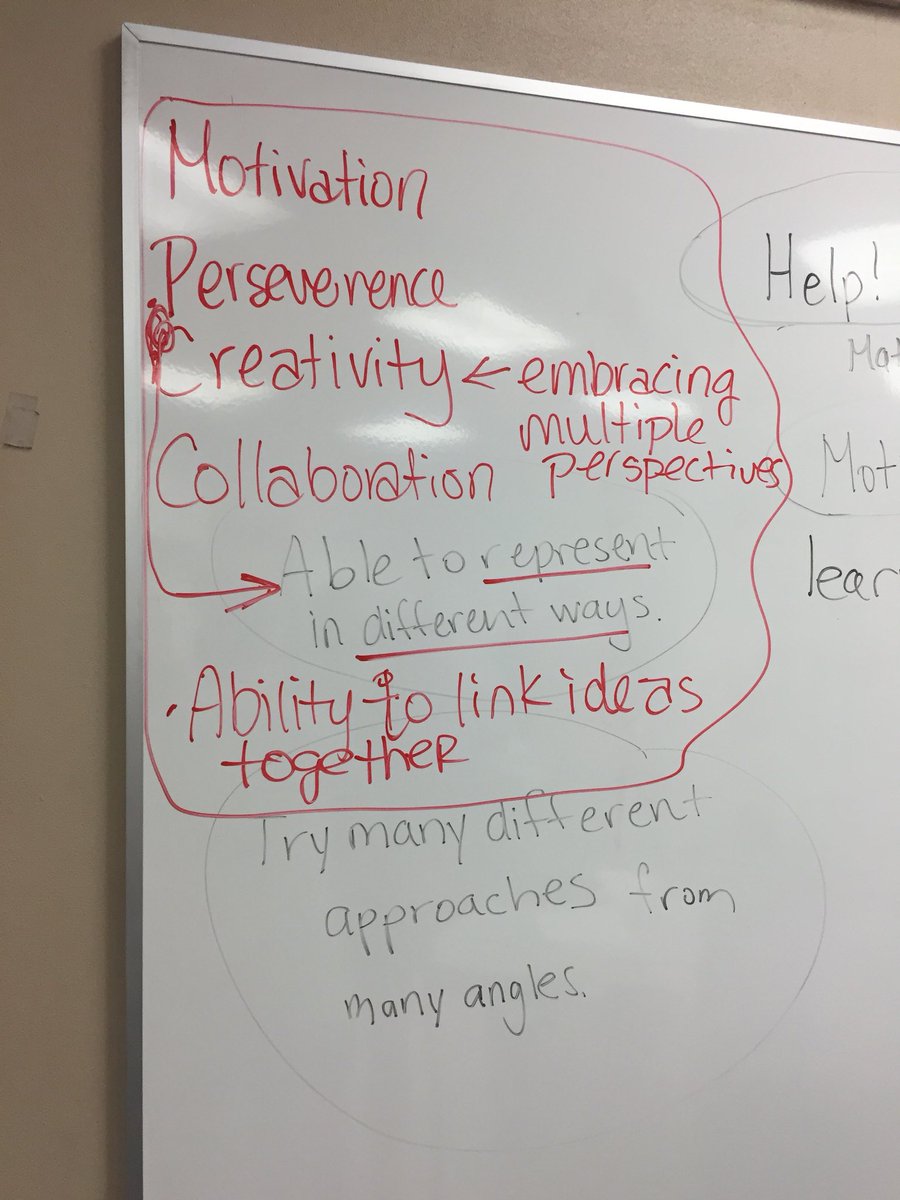 Motivation
Perseverence
Creativity ← embracing
multiple
Collaboration perspectives
Able to represent
in different ways.
· Ability to link ideas
together
Try many different
approaches from
many angles.
Help!
Mat
Mot
lear